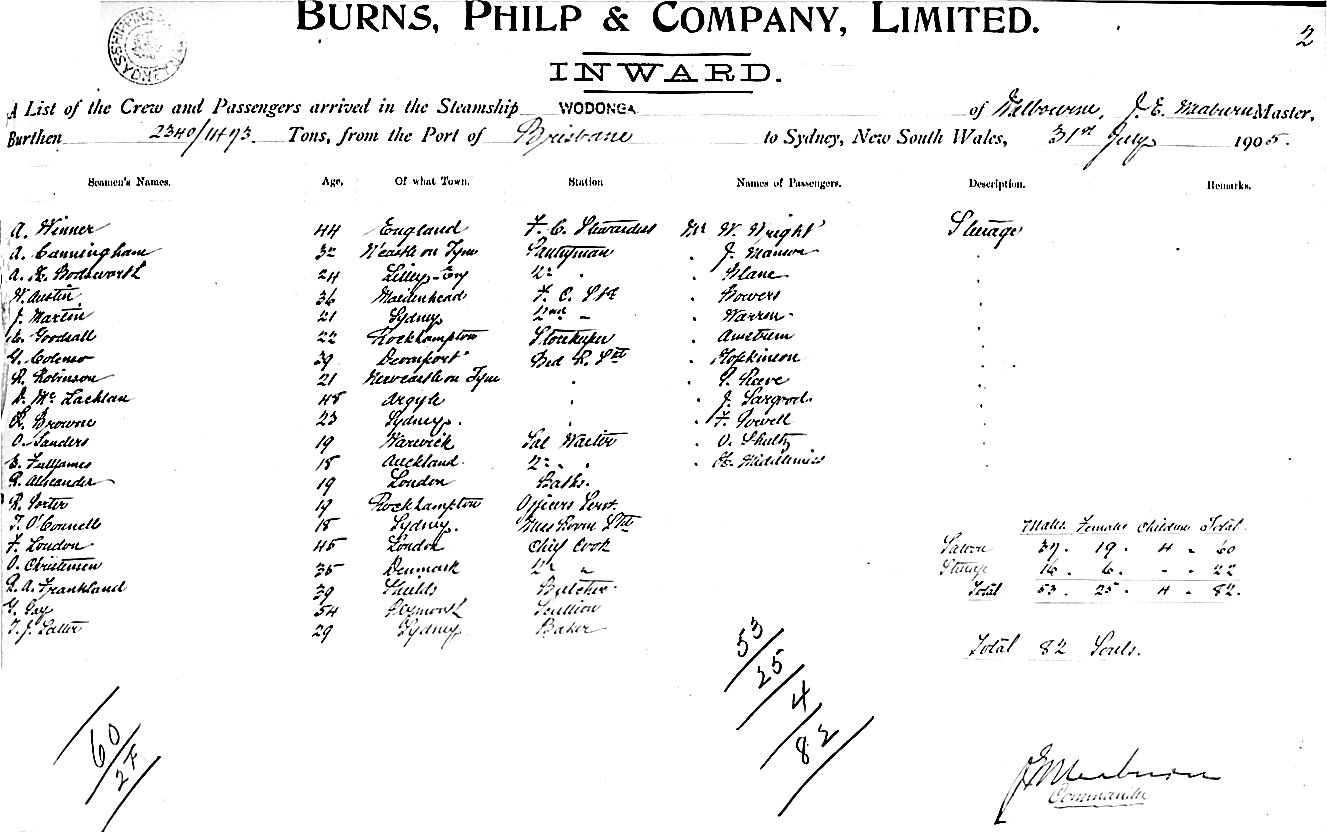 BURNS, PHILP & COMPANY, LIMITED.
2
INWARD.
A List of the Crew and Passengers arrived in the Steamship WODONGA of Melbourne, J. E. Meaburn Master,
Burthen 2340/1473 Tons, from the Port of Brisbane to Sydney, New South Wales, 31st July 1905.
Seamen's Names. Age, Of what Town. Station Names of Passengers. Description. Remarks.
A. Winner 44 England F. C. Stewardess Mr W. Wright Steerage
A. Cunningham 32 N'castle on Tyne Pantryman " J. "
A. H. Bodsworth 24 2nd " " "
W. Austin 36 Maidenhead F. C. Std " Bowers "
J. Martin 21 Sydney 2nd " " Warren "
C. Goodsall 22 Rockhampton Storekeeper " "
G. Colenso 39 Devonport Bed R. Std " Hopkinson "
R. Robinson 21 Newcastle on Tyne " " "
D. McLachlan 48 Argyle " " J. Sargood "
H. Browne 23 Sydney. " " F. Powell "
O. Sanders 19 Warwick Sal Waiter " O. Shultz "
E. Fulljames 18 Auckland. 2nd " " " "
R. Alexander 19 London Baths.
R. Porter 19 Rockhampton Officers Servt.
T. O'Connell 18 Sydney. Mess Room Std
Males Females Children Total
F. London 45 London Chief Cook Saloon 37. 19. 4 - 60
O. Christensen 35 Denmark 2nd " Steerage 16. 6. - - 22
R. A. Frankland 39 Shields Butcher Total 53. 25. 4 - 82.
G. Gay 54 Plymouth Scullion
T. J. Salter 29 Sydney Baker
Total 82 Souls.
53/25/4/82
60/27
J E Meaburn
Commander